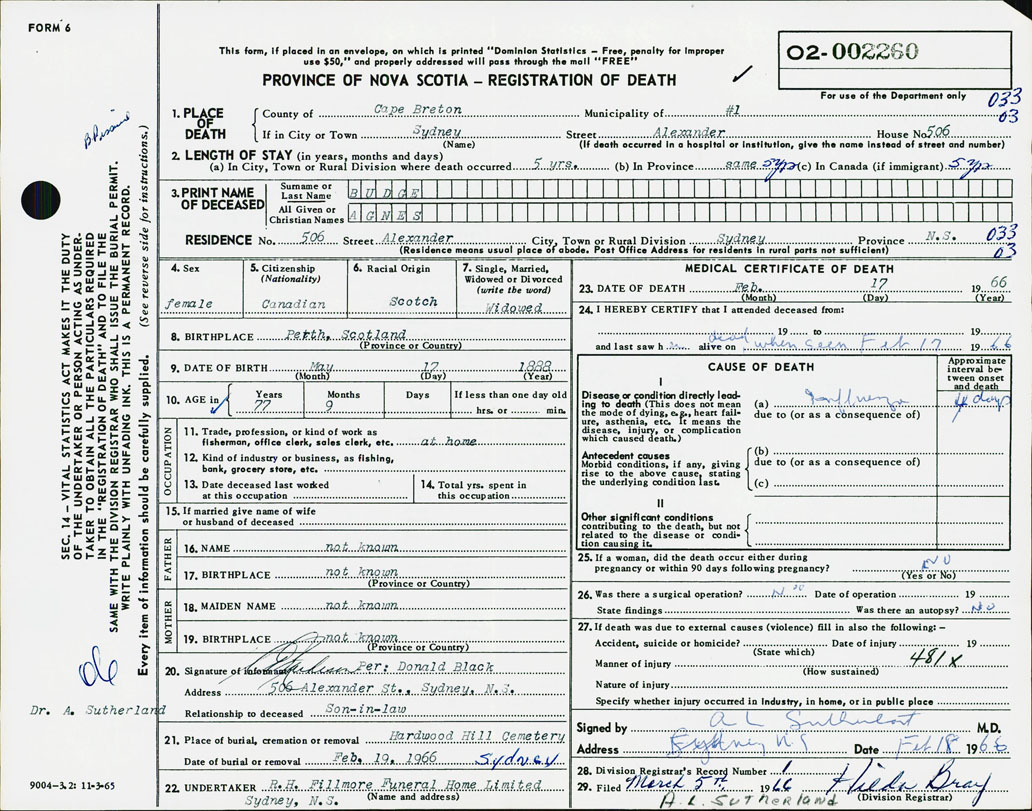 FORM 6
This form, if placed in an envelope, on which is printed "Dominion Statistics – Free, penalty for improper
use $50," and properly addressed will pass through the mail "FREE"
PROVINCE OF NOVA SCOTIA – REGISTRATION OF DEATH
02-002260
For use of the Department only
033
03
1. PLACE OF DEATH
County of Cape Breton Municipality of #1
If in City or Town Sydney Street Alexander House No. 506
(Name) (If death occurred in a hospital or institution, give the name instead of street and number)
2. LENGTH OF STAY (in years, months and days)
(a) In City, Town or Rural Division where death occurred 5 yrs. (b) In Province same 5 yrs (c) In Canada (if immigrant) 5 yrs
3. PRINT NAME OF DECEASED
Surname or Last Name BUDGE
All Given or Christian Names AGNES
RESIDENCE No. 506 Street Alexander City, Town or Rural Division Sydney Province N.S.
(Residence means usual place of abode. Post Office Address for residents in rural parts not sufficient)
033
03
4. Sex
female
5. Citizenship
(Nationality)
Canadian
6. Racial Origin
Scotch
7. Single, Married,
Widowed or Divorced
(write the word)
Widowed
8. BIRTHPLACE Perth, Scotland
(Province or Country)
9. DATE OF BIRTH May 17 1888
(Month) (Day) (Year)
10. AGE in
Years Months Days If less than one day old
77 9 hrs. or min.
OCCUPATION
11. Trade, profession, or kind of work as
fisherman, office clerk, sales clerk, etc. at home
12. Kind of industry or business, as fishing,
bank, grocery store, etc.
13. Date deceased last worked
at this occupation
14. Total yrs. spent in
this occupation
15. If married give name of wife
or husband of deceased
FATHER
16. NAME not known
17. BIRTHPLACE not known
(Province or Country)
MOTHER
18. MAIDEN NAME not known
19. BIRTHPLACE not known
(Province or Country)
20. Signature of informant Per: Donald Black
Address 506 Alexander St., Sydney, N.S.
Relationship to deceased Son-in-law
21. Place of burial, cremation or removal Hardwood Hill Cemetery
Date of burial or removal Feb. 19, 1966 Sydney
22. UNDERTAKER R.H. Fillmore Funeral Home Limited
Sydney, N.S. (Name and address)
MEDICAL CERTIFICATE OF DEATH
23. DATE OF DEATH Feb. 17 1966
(Month) (Day) (Year)
24. I HEREBY CERTIFY that I attended deceased from:
19 to 19
and last saw h alive on dead when seen Feb 17 1966
CAUSE OF DEATH
Approximate
interval be-
tween onset
and death
I
Disease or condition directly lead-
ing to death (This does not mean
the mode of dying, e.g., heart fail-
ure, asthenia, etc. It means the
disease, injury, or complication
which caused death.)
(a) Influenza 4 days
due to (or as a consequence of)
Antecedent causes
Morbid conditions, if any, giving
rise to the above cause, stating
the underlying condition last.
(b)
due to (or as a consequence of)
(c)
II
Other significant conditions
contributing to the death, but not
related to the disease or condi-
tion causing it.
25. If a woman, did the death occur either during
pregnancy or within 90 days following pregnancy? NO
(Yes or No)
26. Was there a surgical operation? NO Date of operation 19
State findings Was there an autopsy? NO
27. If death was due to external causes (violence) fill in also the following: –
Accident, suicide or homicide? Date of injury 19
(State which)
Manner of injury 481x
(How sustained)
Nature of injury
Specify whether injury occurred in Industry, in home, or in public place
Signed by A L Sutherland M.D.
Address Sydney NS Date Feb 18 1966
28. Division Registrar's Record Number 1
29. Filed March 5th 1966 Hilda Bray
(Division Registrar)
A.L. SUTHERLAND
SEC. 14 – VITAL STATISTICS ACT MAKES IT THE DUTY
OF THE UNDERTAKER OR PERSON ACTING AS UNDER-
TAKER TO OBTAIN ALL THE PARTICULARS REQUIRED
IN THE "REGISTRATION OF DEATH" AND TO FILE THE
SAME WITH THE DIVISION REGISTRAR WHO SHALL ISSUE THE BURIAL PERMIT.
WRITE PLAINLY WITH UNFADING INK. THIS IS A PERMANENT RECORD.
Every item of information should be carefully supplied. (See reverse side for instructions.)
Dr. A. Sutherland
9004–3.2: 11-3-65